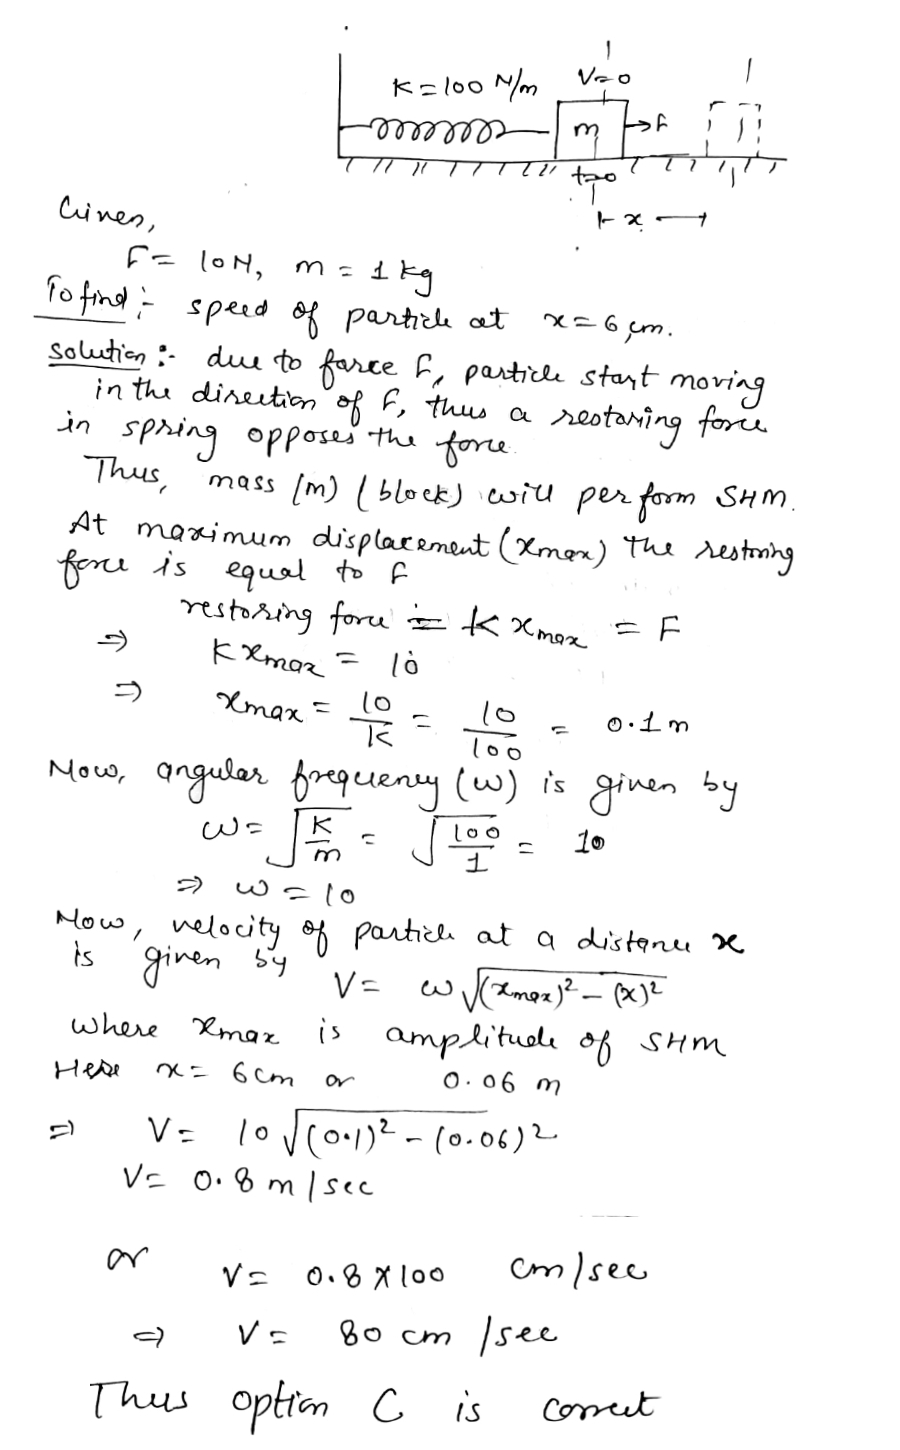 K = 100 N/m
V=0
m
F
t=0
x
Given,
F = 10N, m = 1 kg
To find :- speed of particle at x = 6 cm.
Solution :- due to force F, particle start moving
in the direction of F, thus a restoring force
in spring opposes the force.
Thus, mass (m) (block) will perform SHM.
At maximum displacement (xmax) the restoring
force is equal to F
restoring force = K xmax = F
⇒ K xmax = 10
⇒ xmax = 10/K = 10/100 = 0.1 m
Now, angular frequency (ω) is given by
ω = √(K/m) = √(100/1) = 10
⇒ ω = 10
Now, velocity of particle at a distance x
is given by
V = ω √((xmax)² – (x)²
where xmax is amplitude of SHM
Here x = 6 cm or 0.06 m
⇒ V = 10 √((0.1)² – (0.06)²
V = 0.8 m/sec
or V = 0.8 × 100 cm/sec
⇒ V = 80 cm/sec
Thus option C is correct